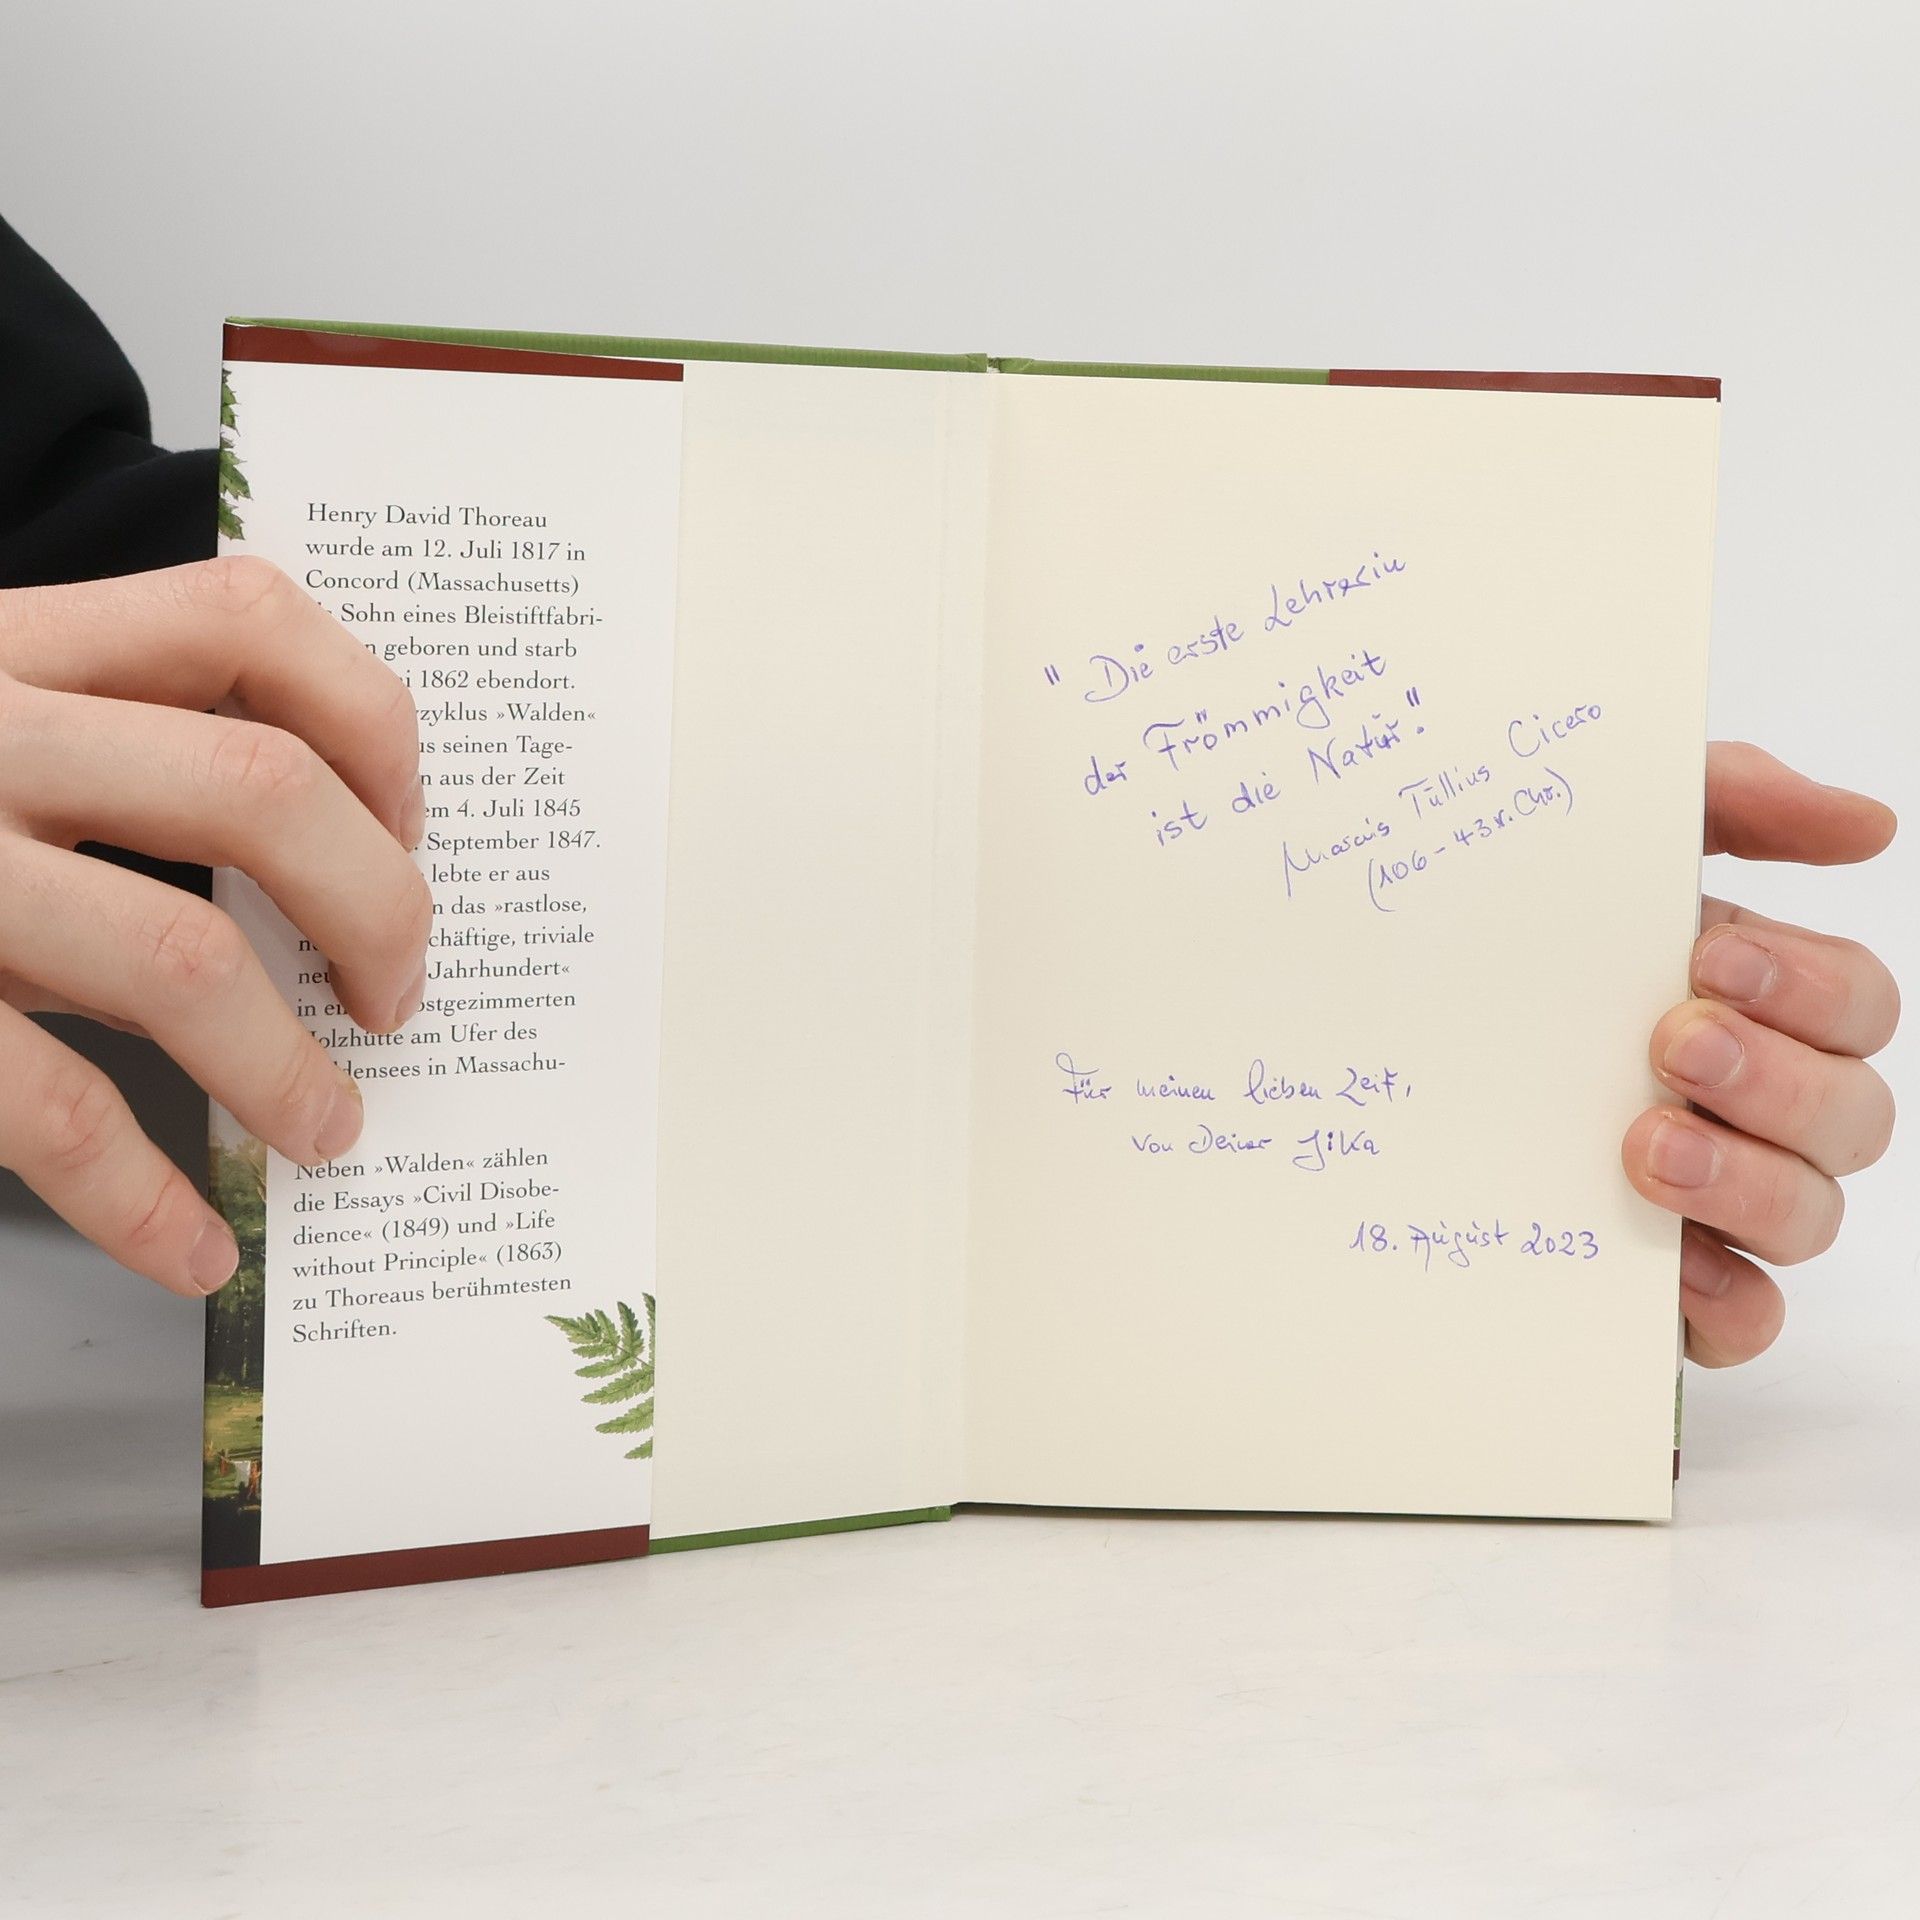 Henry David Thoreau
wurde am 12. Juli 1817 in
Concord (Massachusetts)
Sohn eines Bleistiftfabri-
geboren und starb
1862 ebendort.
»Walden«
seinen Tage-
aus der Zeit
4. Juli 1845
September 1847.
lebte er aus
das »rastlose,
triviale
Jahrhundert«
in
am Ufer des
in Massachu-
Neben »Walden« zählen
die Essays »Civil Disobe-
dience« (1849) und »Life
without Principle« (1863)
zu Thoreaus berühmtesten
Schriften.
"Die erste Lehrerin
der Frömmigkeit
ist die Natur."
Marcus Tullius Cicero
(106-43 v. Chr.)
Für meinen lieben
von Deiner Jika
18. August 2023